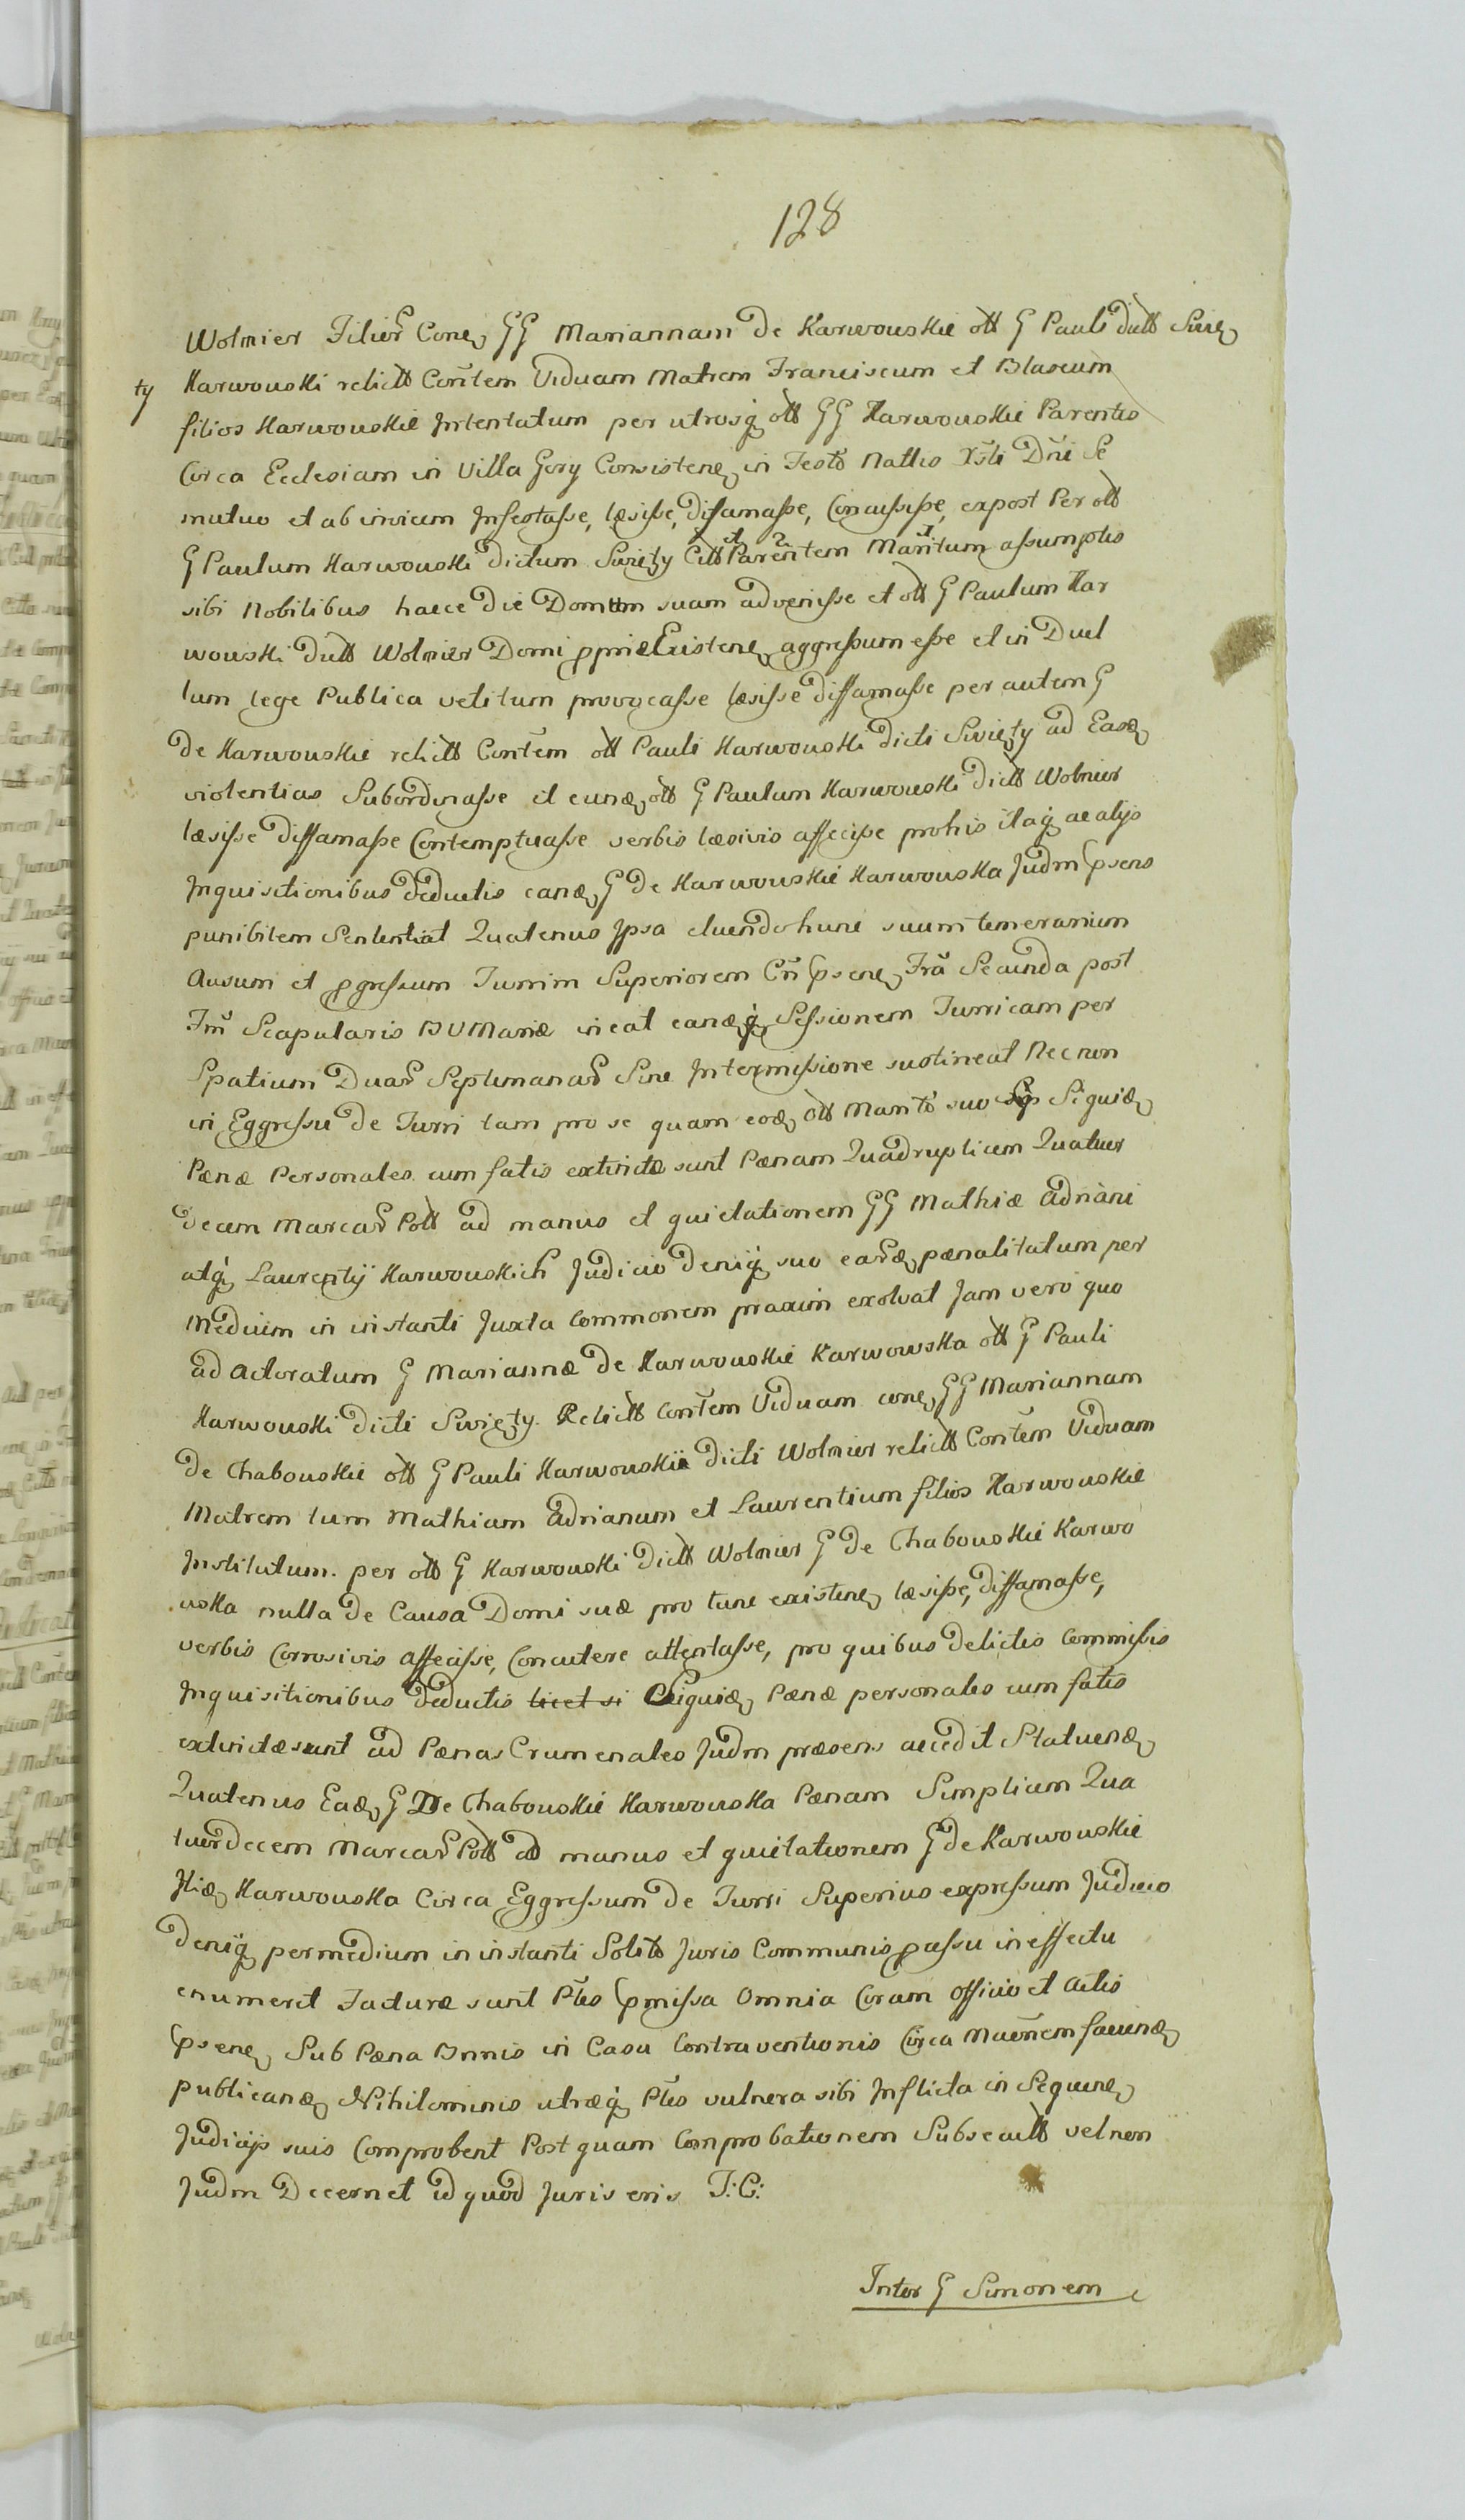 128
Wolnier Filior Conq GG Mariannam De Karwouskie ott G Pauli dictt Swię
ty Karwouski relictt Contem Viduam Matrem Franciscum et Blasium
filios Karwouskie Intentatum per utrosq ott GG Karwouskie Parentes
Circa Ecclesiam in Villa Gory Consisteng in Festo Nattis Xsti Dni Se
mutuo et ab invicem Infestasse, læsisse, diffamasse, Concussisse, expost Per ott
G Paulum Karwouski Dictum Swięty Citt Parentem Maritum assumptis
sibi Nobilibus haece Die Domum suam advenisse et ott G Paulum Kar
wouski Dictt Wolnier Domi ppriæ Existenq aggressum esse et in Duel
lum lege Publica vetitum provocasse læsisse diffamasse per autem G
De Karwouskie relictt Contem ott Pauli Karwouski Dicti Swięty ad Easd
violentias Subordinasse et eund ott G Paulum Karwouski Dictt Wolnier
læsisse diffamasse Contemptuasse verbis læsivis affecisse pro his itaq ac alijs
Inquisitionibus Deductis eand G De Karwouskie Karwouska Judm Psens
punibilem Sententiat Quatenus Ipsa eluendo hunc suum temerarium
Ausum et pgressum Turrim Superiorem Cri Psenq Fra Secunda post
Fm Scapularis BV Mariæ ineat eandq Sessionem Turricam per
Spatium Duar Septimanar Sine Intermissione sustineat Necnon
in Eggressu De Turri tam pro se quam eod ott Marito suo Siquid
Pænæ Personales cum fatis extinctæ sunt Pænam Quadruplicem Quatuor
Decem Marcar Poll ad manus et quietationem GG Mathiæ Adriani
atq Laurentij Karwouskich Judicio Deniq suo eard pænalitatum per
Medium in instanti Juxta Commonem praxim exolvat Jam vero quo
ad Actoratum G Mariannæ De Karwouskie Karwowska ott G Pauli
Karwouski Dicti Swięty Relictt Contem Viduam conq GG Mariannam
De Chabouskie ott G Pauli Karwouskie Dicti Wolnier relictt Contem Viduam
Matrem tum Mathiam Adrianum et Laurentium filios Karwouskie
Institutum. per ott G Karwouski Dictt Wolnier G De Chabouskie Karwo
uska nulla De Causa Domi suæ pro tunc existenq læsisse, diffamasse,
verbis Corrosivis Affecisse, Concutere attentasse, pro quibus Delictis Commissis
Inquisitionibus Deductis licet si Siquid Pænæ personales cum fatis
extinctæ sunt ad Pænas Crumenales Judm præsens accedit Statuend
Quatenus Ead G De Chabouskie Karwouska Pænam Simplicem Qua
tuordecem Marcar Poll ad manus et quietationem G de Karwouskie
Itid Karwouska Circa Eggressum De Turri Superius expressum Judicio
Deniq per medium in instanti Solito Juris Communis passu in effectu
enumeret Facturæ sunt Ptes Pmissa Omnia Coram Officio et Actis
Psenq Sub Pæna Bnnis in Casu Contraventionis Circa Muonem favend
publicand Nihilominis utræq Ptes vulnera sibi Inflicta in Sequenq
Judicijs suis Comprobent Post quam Comprobationem Subsecutt vel non
Judm Decernet id quod Juris eris T: C:
Inter G Simonem